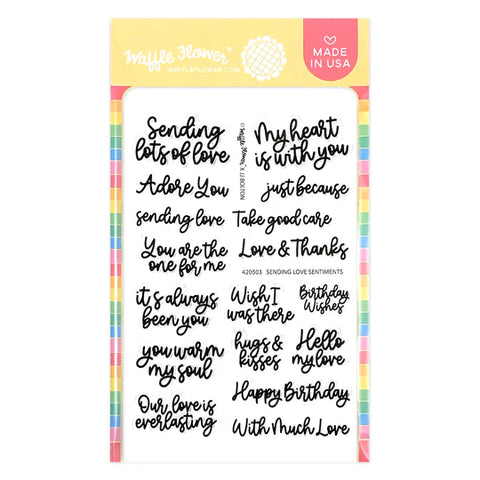 Waffle Flower
WAFFLEFLOWER.COM
MADE
IN USA
Sending
lots of love
My heart
is with you
Waffle Flower X JJ BOLTON
Adore You
just because
sending love
Take good care
You are the
one for me
Love & Thanks
420503 SENDING LOVE SENTIMENTS
it's always
been you
Wish I
was there
Birthday
Wishes
you warm
my soul
hugs &
kisses
Hello
my love
Our love is
everlasting
Happy Birthday
With Much Love